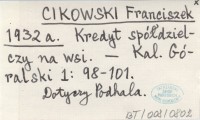 CIKOWSKI Franciszek
1932 a. Kredyt spółdziel-
czy na wsi. — Kal. Gó-
ralski 1: 98-101.
Dotyczy Podhala.
GT/001/0802